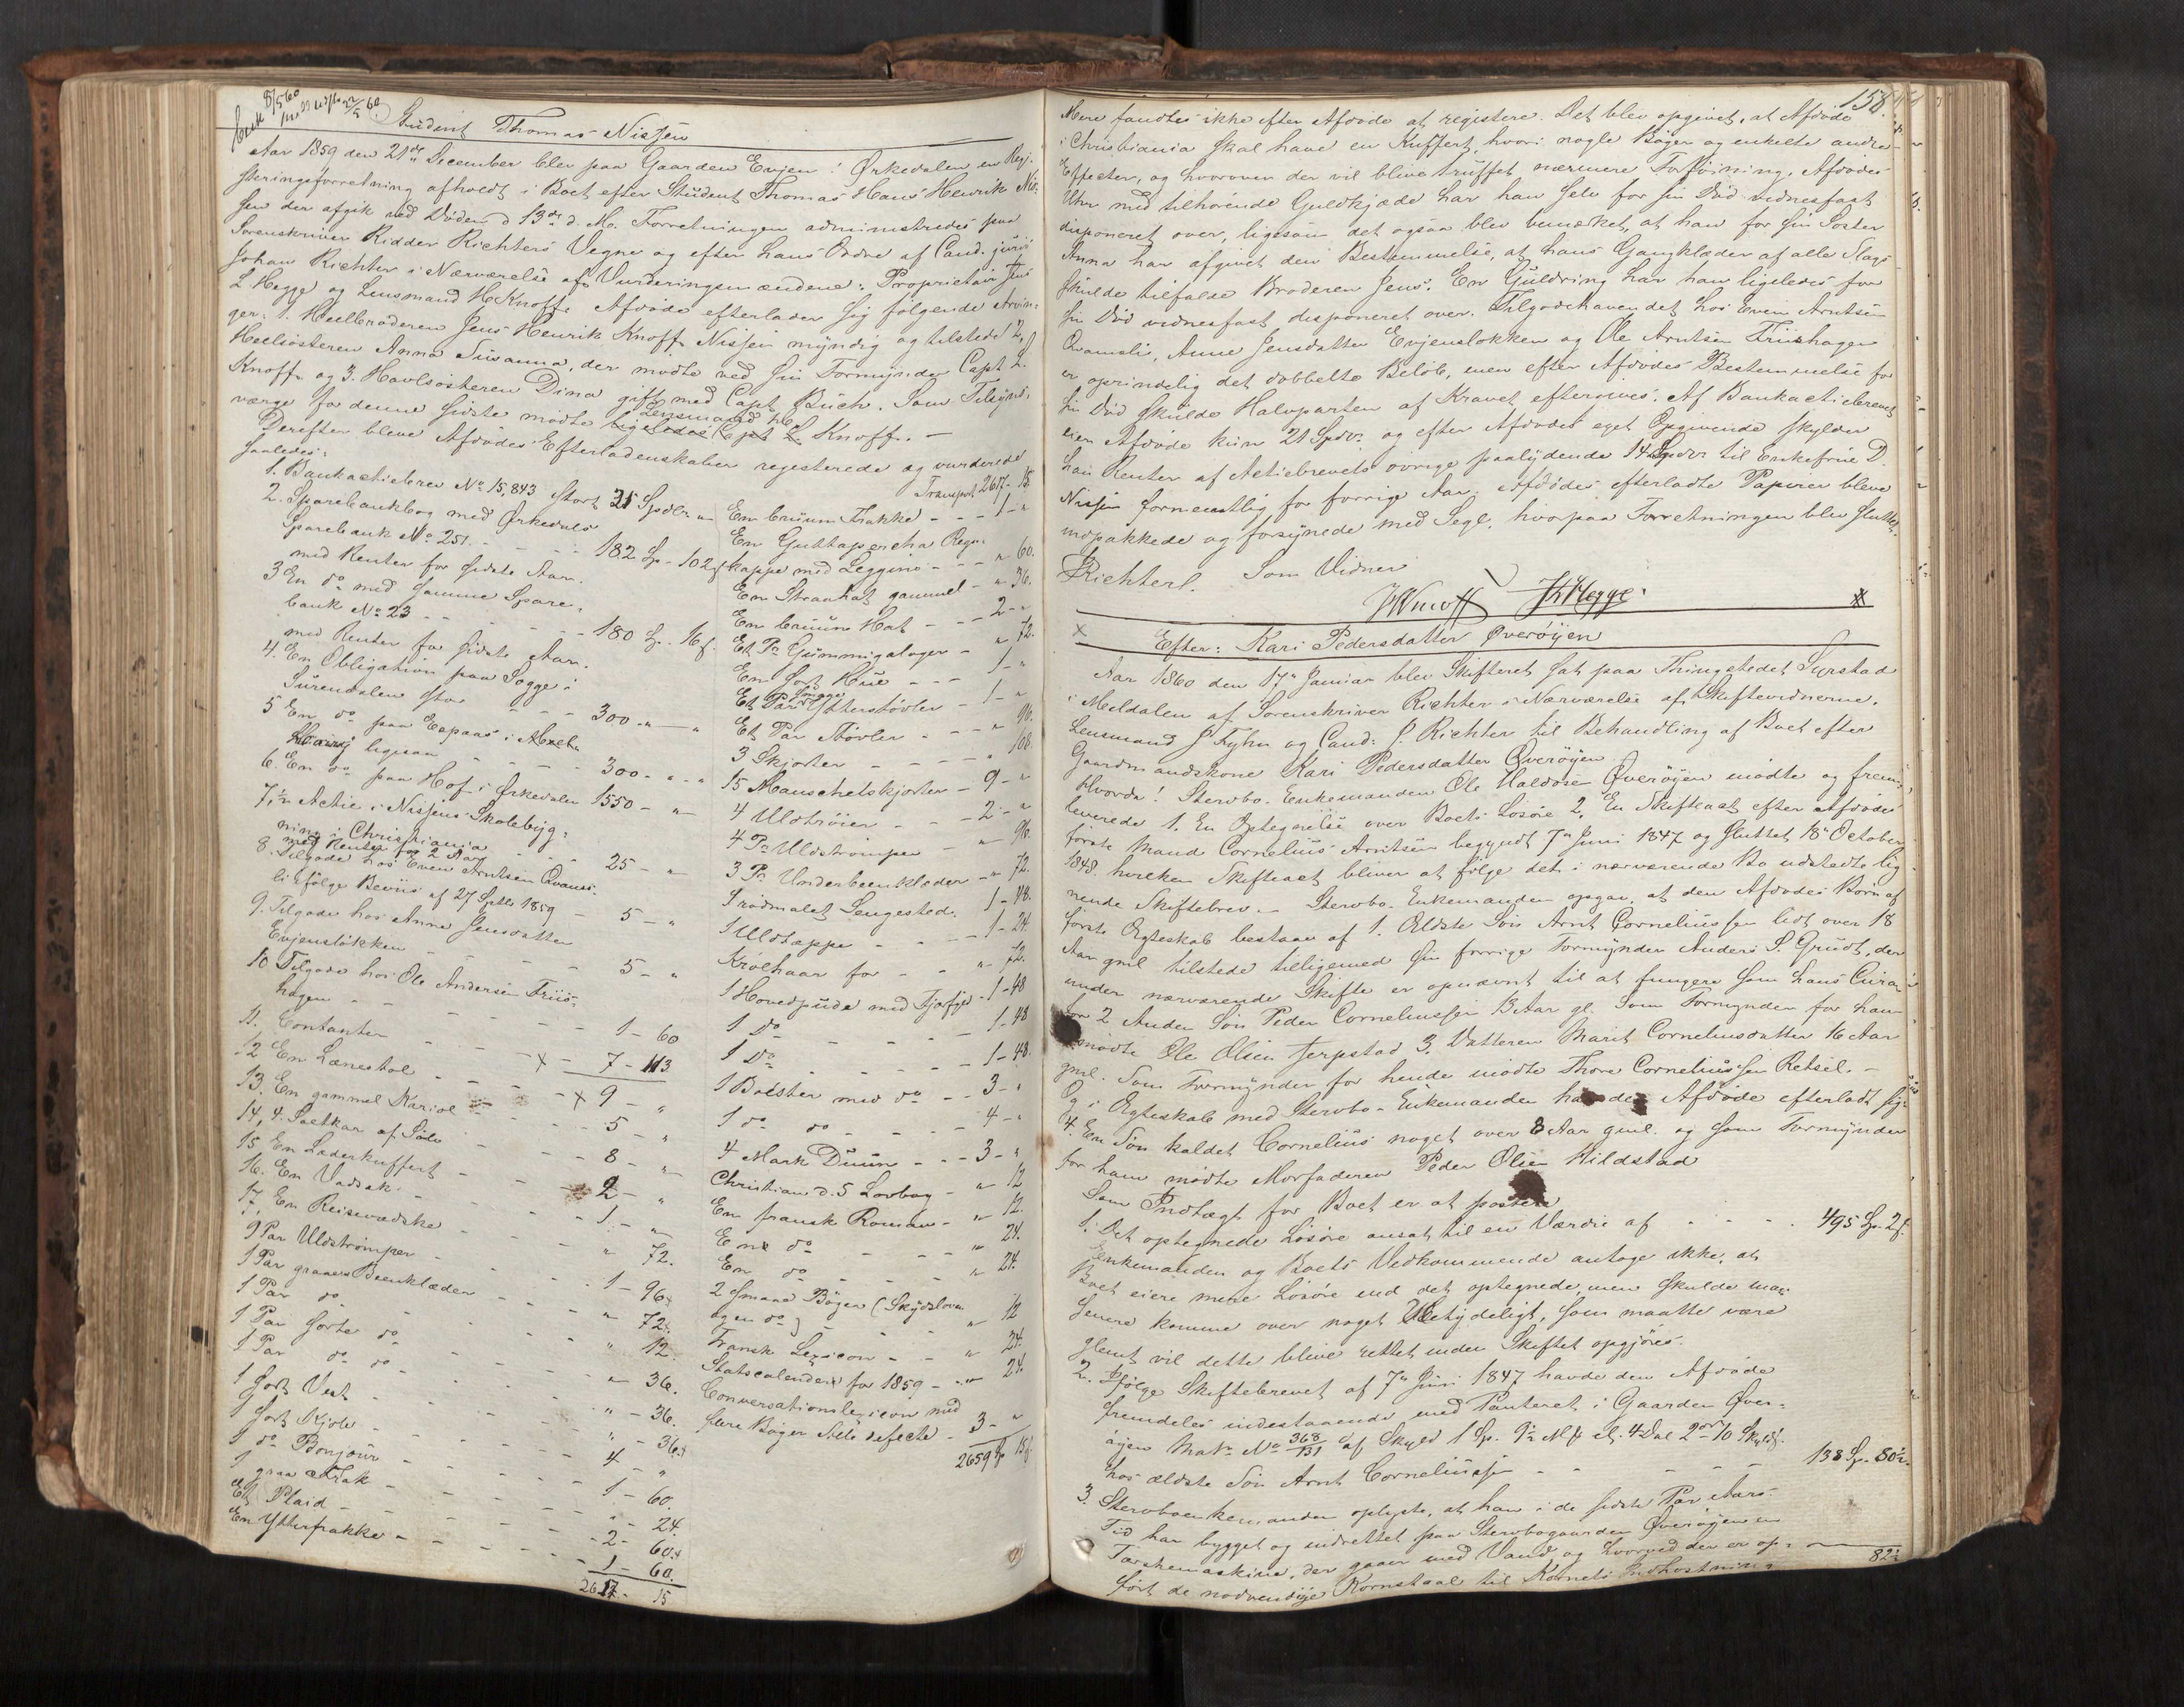 8/5 60
Student Thomas Nissen
Aar 1859 den 21de December blev paa Gaarden Evjen i Ørkedalen en Regi-
streringsforretning afholdt i Boet efter Student Thomas Hans Henrik Nis-
sen der afgik ved Døden d 13de d. M. Forretningen administredes paa
Sorenskriver Ridder Richters Vegne og efter hans Ordre af Cand. juris
Johan Richter i Nærværelse af Vurderingsmændene: Proprietair Jens
L Hegge og Lensmand H Knoff. Afdøde efterlader sig følgende Arvin-
ger: 1. Heelbroderen Jens Henrik Knoff Nissen myndig og tilstede 2,
Heelsøsteren Anna Susanna, der mødte ved sin Formynder Capt. L.
Knoff og 3. Havlsøsteren Dina gift med Capt. Buch. Som Tilsyns-
værge for denne sidste mødte ligeledes Capt L Lensmand H. Knoff. —
Derefter bleve Afdødes Efterladenskaber registerede og vurderede
saaledes:
1. Bankactiebrev No 15,843 stort 35 Spdlr „
2. Sparebankbog med Ørkedals
Sparebank No 251. - - - 182 Sp - 102 s
med Renter for sidste Aar.
3 En do med samme Spare-
bank No 23 - - - 180 Sp. 16 s.
med Renter for sidste Aar.
4. En Obligation paa Sogge i
Surendalen stor - - - 300 - „ - „
5 En do paa Espaas i
ligesaa - - - 300 - „ - „
6. En do paa Hof i Ørkedalen 1550 - „
7, ½ Actie i Nissens Skolebyg-
ning i Christiania - - - 25 - „
med Renter for 2 Aar
8. Tilgode hos Even Arntsen Qvams-
li ifølge Beviis af 27 Septbr 1859 - 5 - „
9. Tilgode hos Anne Jensdatter
Evjensløkken - - - 5 - „
10 Tilgode hos Ole Andersen Friis-
hagen - - - 1 - 60
11. Contanter - - - 7 - 113
12 En Lænestol - - - 9 - „
13. En gammel Kariol - - 5 - „
14, 4. Saltkar af Sølv - - 8 - „
15 En Læderkuffert - - 2 - „
16. En Vadsæk. - - 1 - „
17, En Reisevædske - - „ 72.
9 Par Uldstrømper - - 1 - 96
1 Par graae Beenklæder - - „ 72.
1 Par do - - „ 12.
1 Par sorte do - - „ 36.
1 Par do do - - „ - 36.
1 sort Vest - - „ - 36
1 sort Kjole - - 4 - „
1 do Bonjour - - 1 - 60.
1 graa Frak - - „ - 24.
Et Plaid - - 2 - 60
En Ytterfrakke - - 1 - 60.
2617 - 15
Transport 2617 - 15
En bruun Frakke - - - 1 - „
En Guttapercha Regn-
kappe med Leggins - - - „ 60.
En Straahat gammel - „ 36.
En bruun Hat - - - 2 - „
Et Pr Gummigaloger - „ 72.
En sort Hue - - - 1 - „
Et Par Ytterstøvler - 1 - „
Et Par Støvler - - - „ 96.
3 Skjorter - - - „ 108
15 Manschetskjorter - 9 - „
4 Uldtrøier - - - 2 - „
4 Pr Uldstrømper - „ 96.
3 Pr Underbeenklæder - „ 72.
1 rødmalet Sengested. 1 - 48.
1 Uldtæppe - - - 1 - 24
Krølhaar for - - „ 72.
1 Hovedpude med Fjæhr - 1 - 48
1 do - - - 1 - 48
1 do - - - 1 - 48.
1 Bolster med do - - 3 - „
1 do do - - - 4 - „
4 Mark Duun - - - 3 - „
Christian d. 5 Lovbog - „ 12
En fransk Roman - „ 12.
En do - - - „ 24.
En do - - - „ 24.
2 smaae Bøger (Skydslov
ogen do) - - - „ 12
Fransk Lexicon - - „ 24
Statscalender for 1859 - „ 24.
Conversationslexicon med
flere Bøger deels defecte - 3 - „
2659 Sp 15 s
158
Mere fandtes ikke efter Afdøde at registere. Det blev opgivet, at Afdøde
i Christiania skal have en Kuffert, hvori nogle Bøger og enkelte andre
Effecter, og hvorover der vil blive truffet nærmere Forføining. Afdødes
Uhr med tilhørende Guldkjæde har han selv før sin Død vidnesfast
disponeret over, ligesom det ogsaa blev bemærket, at han for sin Søster
Anna har afgivet den Bestemmelse, at hans Gangklæder af alle Slags
skulde tilfalde Broderen Jens. En Guldring har han ligeledes før
sin Død vidnesfast disponeret over. Tilgodehavendet hos Even Arntsen
Qvamsli, Anne Jensdatter Evjensløkken og Ole Arntsen Friishagen
er oprindelig det dobbelte Beløb, men efter Afdødes Bestemmelse før
sin Død skulde Halvparten af Kravet eftergives. Af Bankactiebrevet
eier Afdøde kun 21 Spdr. og efter Afdødes eget Opgivende skylder
han Renter af Actiebrevets øvrige paalydende 14 Spdr til Enkefrue D.
Nissen fornemtlig for forrige Aar. Afdødes efterladte Papirer bleve
indpakkede og forsynede med Segl, hvorpaa Forretningen blev sluttet.
Richter. Som Vidner
HKnoff JLHegge.
Efter: Kari Pedersdatter Øverøyen
Aar 1860 den 17de Januar blev Skifteret sat paa Thingstedet Syrstad
i Meldalen af Sorenskriver Richter i Nærværelse af Skiftevidnerne,
Lensmand J Fyhn og Cand: J. Richter til Behandling af Boet efter
Gaardmandskone Kari Pedersdatter Øverøyen
Hvorda! Stervbo-Enkemanden Ole Haldosen Øverøyen mødte og frem-
leverede 1. En Optegnelse over Boets Løsøre 2. En Skifteact efter Afdødes
første Mand Cornelius Arntsen begyndt 7de Juni 1847 og sluttet 18de October
1848. hvilken Skifteact bliver at følge det i nærværende Bo udstedte lig-
nende Skiftebrev. — Stervbo-Enkemanden opgav, at den Afdødes Børn af
første Ægteskab bestaar af 1. Ældste Søn Arnt Corneliussen lidt over 18
Aar gml tilstede tilligemed sin forrige Formynder Anders S. Grudt, der
under nærværende Skifte er opnævnt til at fungere som hans Cura-
tor 2 Anden Søn Peder Corneliussen 13 Aar gl. Som Formynder for ham
mødte Ole Olsen Jerpstad 3. Datteren Marit Corneliusdatter 16 Aar
gml. Som Formynder for hende mødte Thore Corneliussen Retsel. —
Og i Ægteskab med Stervbo-Enkemanden havde Afdøde efterladt sig:
4. En Søn kaldet Cornelius noget over 8 Aar gml. og som Formynder
for ham mødte Morfaderen Peder Olsen Kildstad
Som Indtægt for Boet er at postere
1. Det optegnede Løsøre ansat til en Værdie af - - - 495 Sp. 2 s.
Enkemanden og Boets Vedkommende antage ikke, at
Boet eiere mere Løsøre end det optegnede, men skulde man
senere komme over noget Ubetydeligt, som maatte være
glemt vil dette blive rettet inden Skiftet opgjøres.
2. Ifølge Skiftebrevet af 7de Juni 1847 havde den Afdøde
fremdeles indestaaende med Panteret i Gaarden Øver-
øyen Matr No 368/131 af Skyld 1 Sp.
hos ældste Søn Arnt Corneliussen - - - 138 Sp. 80½.
3. Stervboenkemanden oplyste, at han i de sidste Par Aars
Tid har bygget og indrettet paa Stervbogaarden Øverøyen en
Tærskemaskine, der gaaer med Vand, og hvorved der er op-
ført de nødvendige Kornstaal til Kornets Indhøstning
82½